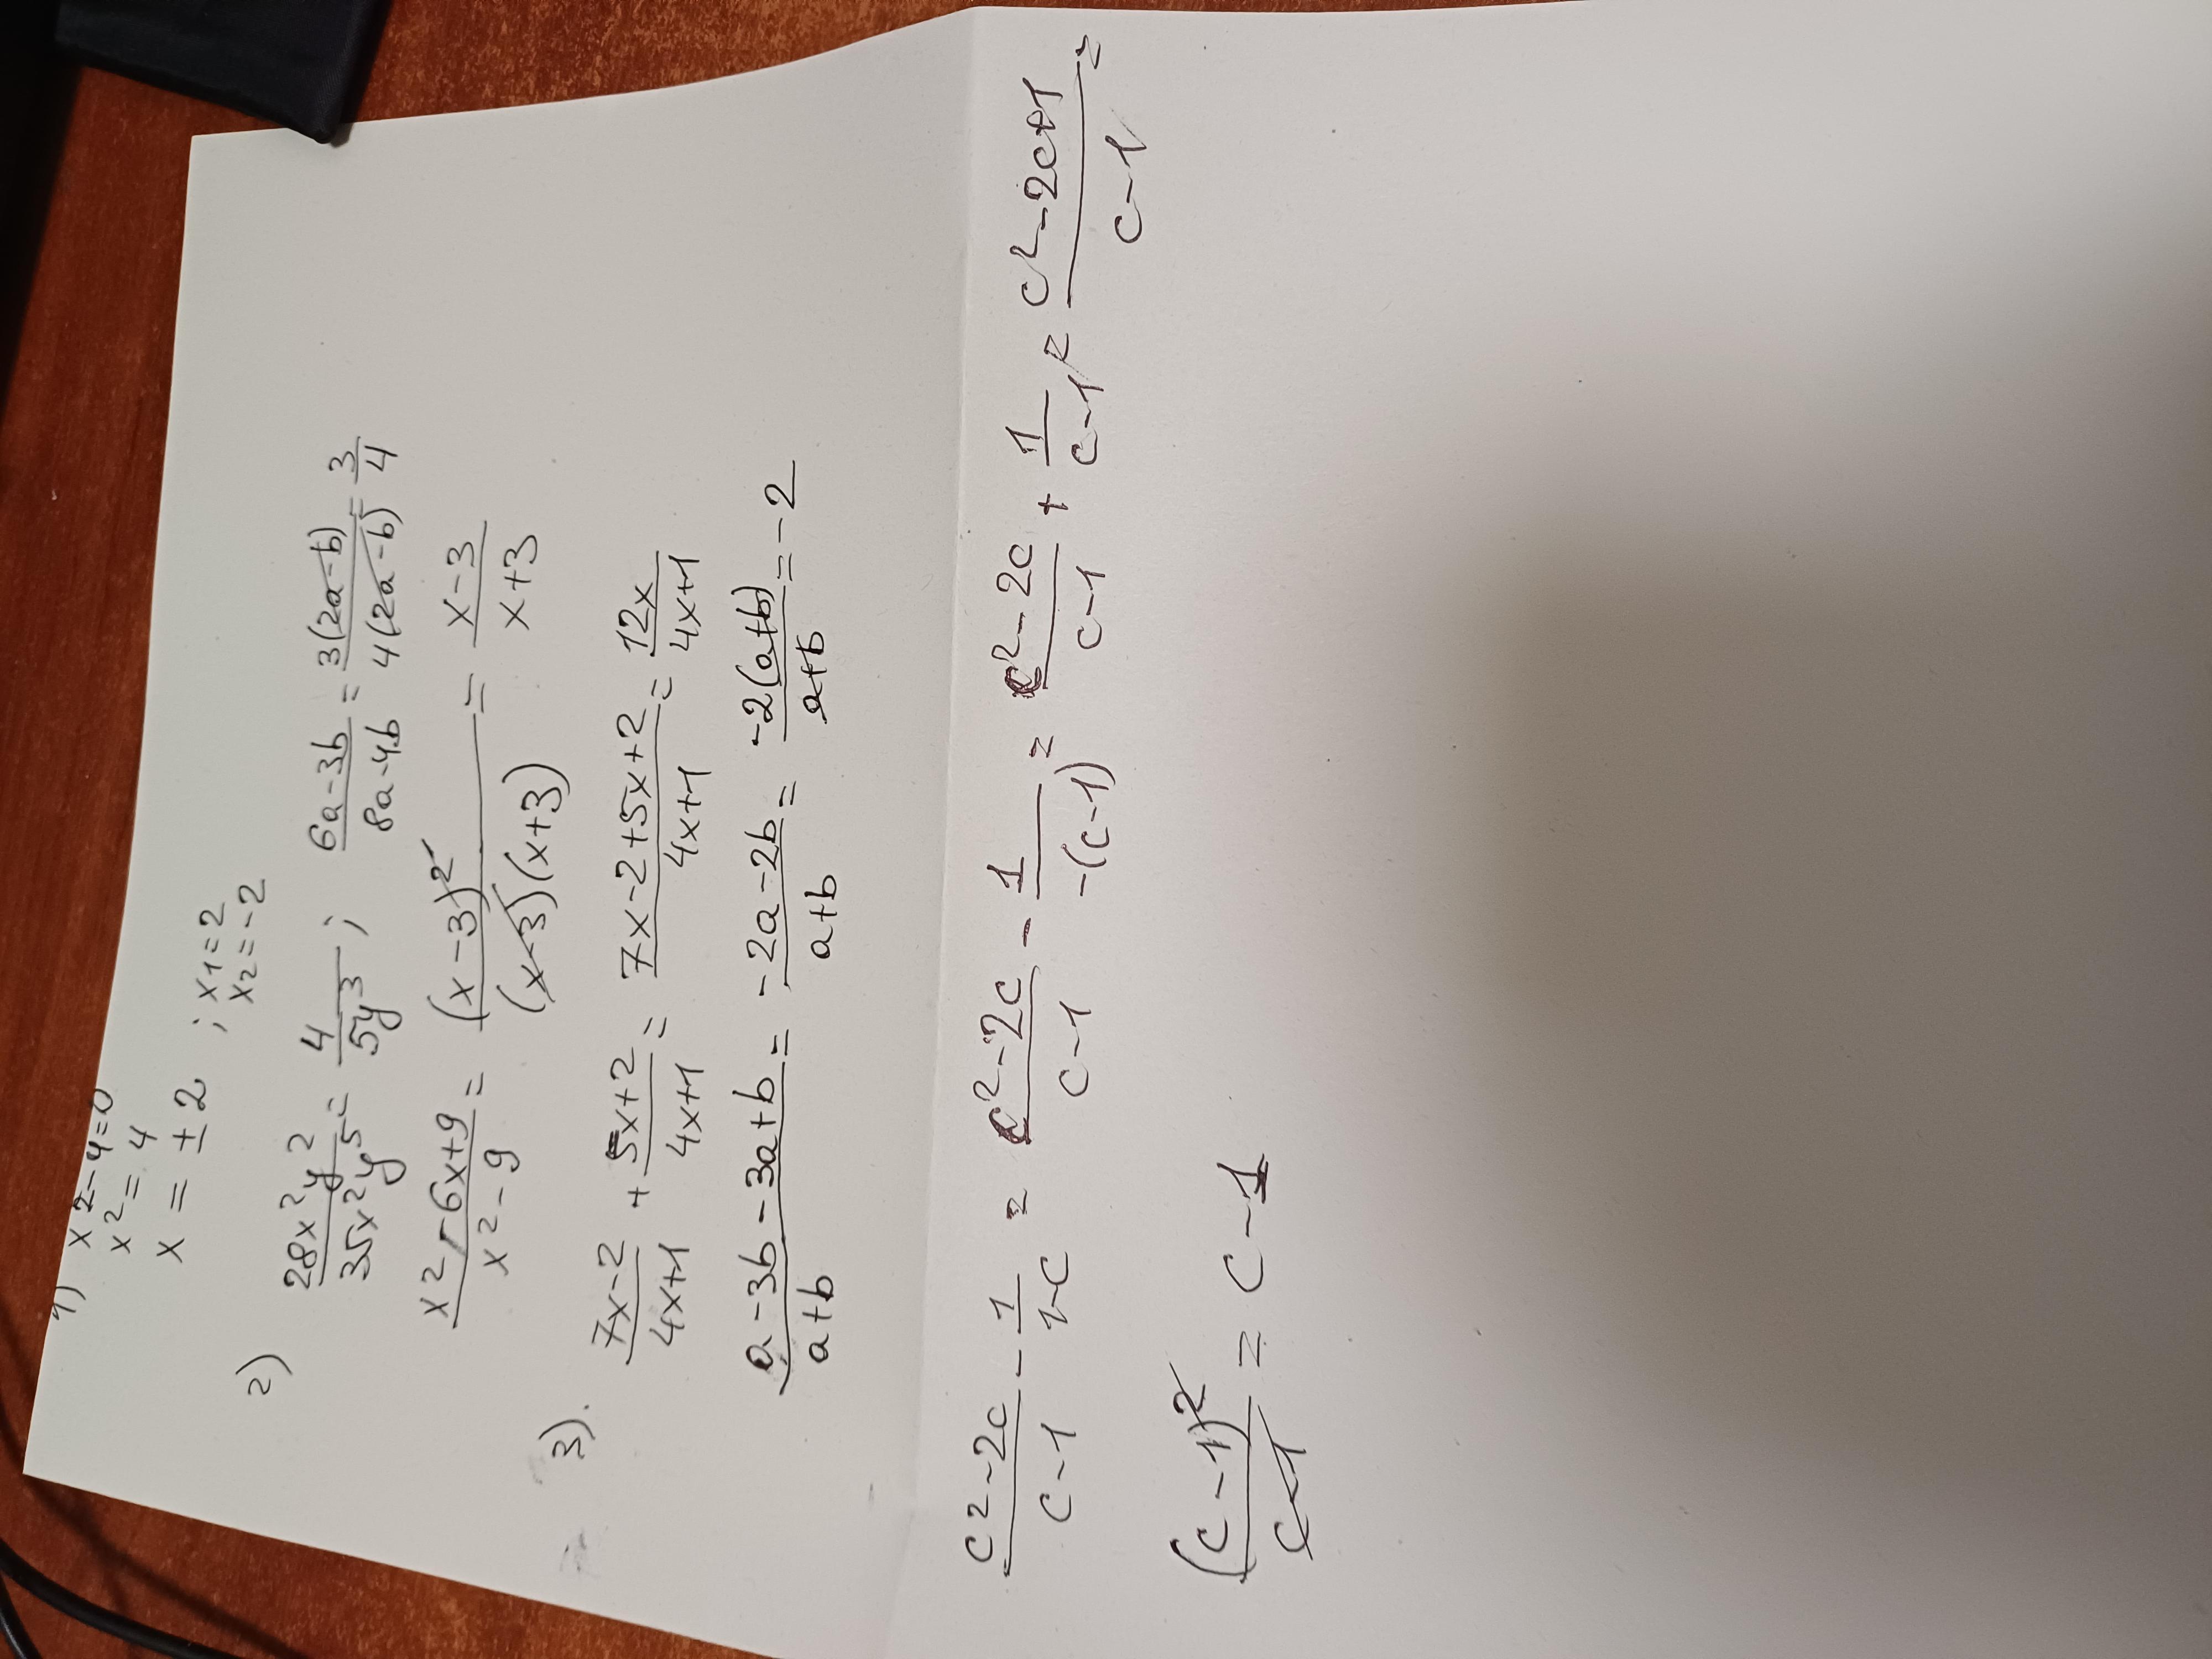 1) x²-4=0
x²=4
x = ±2 ; x1=2
x2=-2
2) 28x²y²/35x²y⁵ = 4/5y³ ; 6a-3b/8a-4b = 3(2a-b)/4(2a-b) = 3/4
x²-6x+9/x²-9 = (x-3)²/(x-3)(x+3) = x-3/x+3
3). 7x-2/4x+1 + 5x+2/4x+1 = 7x-2+5x+2/4x+1 = 12x/4x+1
a-3b-3a+b/a+b = -2a-2b/a+b = -2(a+b)/a+b = -2
c²-2c/c-1 - 1/1-c = c²-2c/c-1 - 1/-(c-1) = c²-2c/c-1 + 1/c-1 = c²-2c+1/c-1 =
(c-1)²/c-1 = c-1